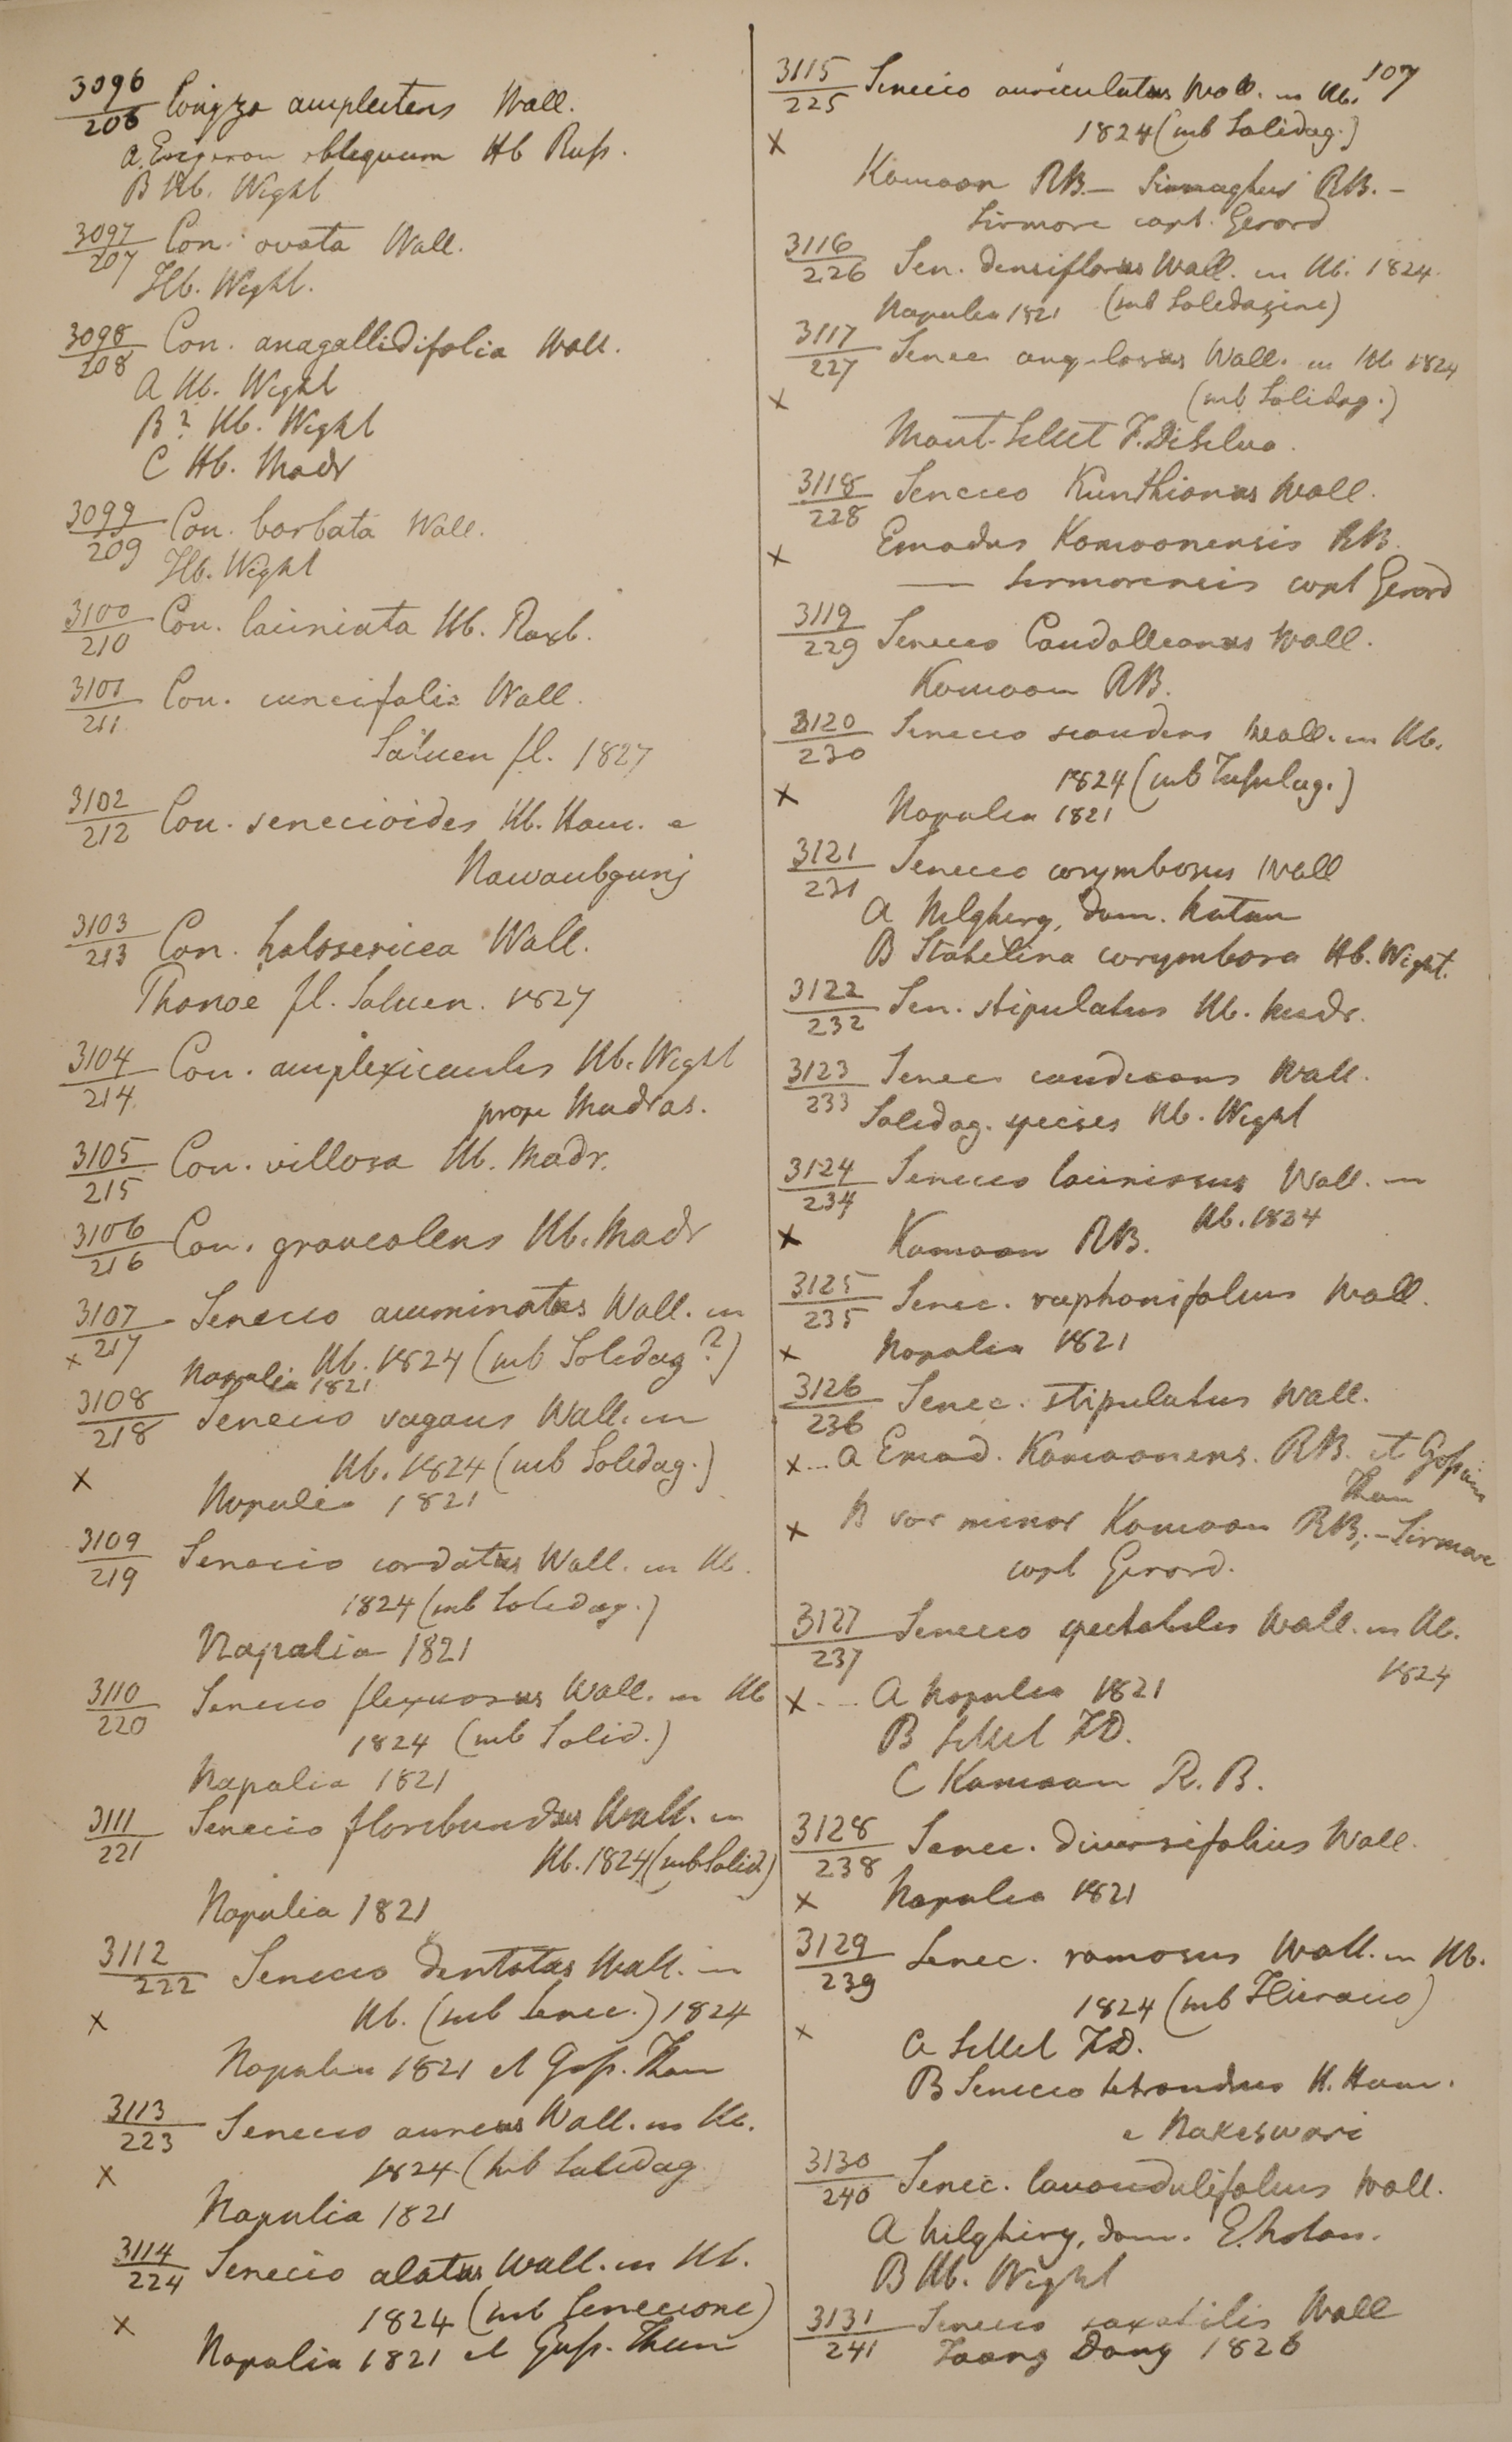 3096
206 Conyza amplectens Wall.
a. Erigeron obliquum Hb Russ.
B Hb. Wight
3097
207 Con. ovata Wall.
Hb. Wight.
3098
208 Con. anagallidifolia Wall.
A Hb. Wight
B? Hb. Wight
C Hb. Madr
3099
209 Con. barbata Wall.
Hb. Wight
3100
210 Con. laciniata Hb. Roxb.
3101
211 Con. cuneifolia Wall.
Saluen fl. 1827
3102
212 Con. senecioides Hb. Ham. e
Nawaubgunj
3103
213 Con. holosericea Wall.
Thanoe fl. Saluen. 1827
3104
214 Con. amplexicaulis Hb. Wight
prope Madras.
3105
215 Con. villosa Hb. Madr.
3106
216 Con. graveolens Hb. Madr
3107
217 Senecio acuminatus Wall. in
x Hb. 1824 (sub Solidag?)
Napalia 1821
3108
218 Senecio vagans Wall. in
x Hb. 1824 (sub Solidag.)
Napalia 1821
3109
219 Senecio cordatus Wall. in Hb.
1824 (sub Solidag.)
Napalia 1821
3110
220 Senecio flexuosus Wall. in Hb
1824 (sub Solid.)
Napalia 1821
3111
221 Senecio floribundus Wall. in
Hb. 1824 (sub Solid.)
Napalia 1821
3112
222 Senecio dentatus Wall. in
x Hb. (sub Senec.) 1824
Napalia 1821 et Goss. Than
3113
223 Senecio aureus Wall. in Hb.
x 1824 (sub Solidag
Napalia 1821
3114
224 Senecio alatus Wall. in Hb.
x 1824 (sub Senecione)
Napalia 1821 et Goss. Than
107
3115
225 Senecio auriculatus Wall. in Hb.
x 1824 (sub Solidag.)
Kamaon RB. — Sirinaghur RB. —
Sirmore capt. Gerard
3116
226 Sen. densiflorus Wall. in Hb. 1824
Napalia 1821 (sub Solidagine)
3117
227 Senec angulosus Wall. in Hb 1824
x (sub Solidag.)
Mont. Sillet F. DeSilva.
3118
228 Senecio Kunthianus Wall.
x Emodus Kamaonensis RB.
— Sirmorensis capt Gerard
3119
229 Senecio Candolleanus Wall.
Kamaon RB.
3120
230 Senecio scandens Wall. in Hb.
x 1824 (sub Tussilag.)
Napalia 1821
3121
231 Senecio corymbosus Wall
A Nilghery, dom.
B Stahelina corymbosa Hb. Wight.
3122
232 Sen. stipulatus Hb. Madr.
3123
233 Senec candicans Wall.
Solidag. species Hb. Wight
3124
234 Senecio laciniosus Wall. in
x Hb. 1824
Kamaon RB.
3125
235 Senec. raphanifolius Wall.
x Napalia 1821
3126
236 Senec. stipulatus Wall.
x... A Emod. Kamaonens. RB. et Gossain
Than
x B var minor Kamaon RB; — Sirmore
capt Gerard.
3127
237 Senecio spectabilis Wall. in Hb.
1824
x... A Napalia 1821
B Sillet FD.
C Kamaon R. B.
3128
238 Senec. diversifolius Wall.
x Napalia 1821
3129
239 Senec. ramosus Wall. in Hb.
1824 (sub Hieracio)
x A Sillet FD.
B Senecio tetrandrus H. Ham.
e Nakeswari
3130
240 Senec. lavandulifolius Wall.
A Nilghiry, dom.
B Hb. Wight
3131
241 Senecio saxatilis Wall
Taong Dong 1826